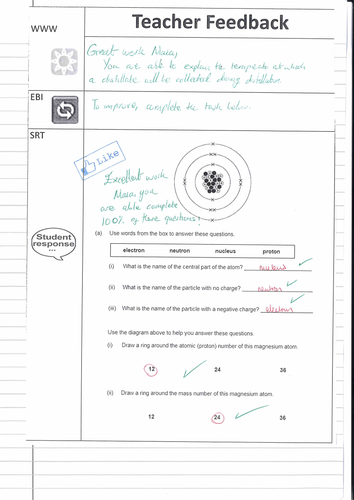 Teacher Feedback
WWW
Great work Maya,
You are able to explain the temperature at which
a distillate will be collected during distillation.
EBI
To improve, complete the task below.
SRT
Like
Excellent work
Maya, you
are able complete
100% of these questions!
Student
response
...
(a) Use words from the box to answer these questions.
electron neutron nucleus proton
(i) What is the name of the central part of the atom? nucleus
(ii) What is the name of the particle with no charge? neutron
(iii) What is the name of the particle with a negative charge? electron
Use the diagram above to help you answer these questions.
(i) Draw a ring around the atomic (proton) number of this magnesium atom.
12 24 36
(ii) Draw a ring around the mass number of this magnesium atom.
12 24 36